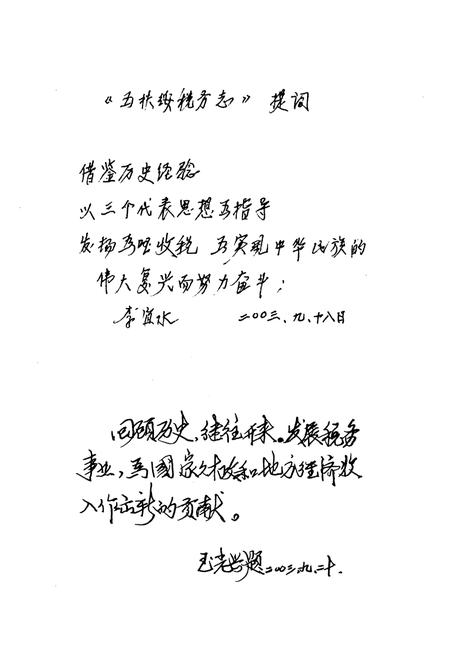 《五状缐税务志》 提词
借鉴历史经验
以三个代表思想为指导
发扬为民收税 为实现中华民族的
伟大复兴而努力奋斗;
李宜水 二00三、九、十八日
回顾历史,继往开来。发展税务
事业,為國家财政和地方经济收
入作出新的贡献。
题二00三、九、二十.